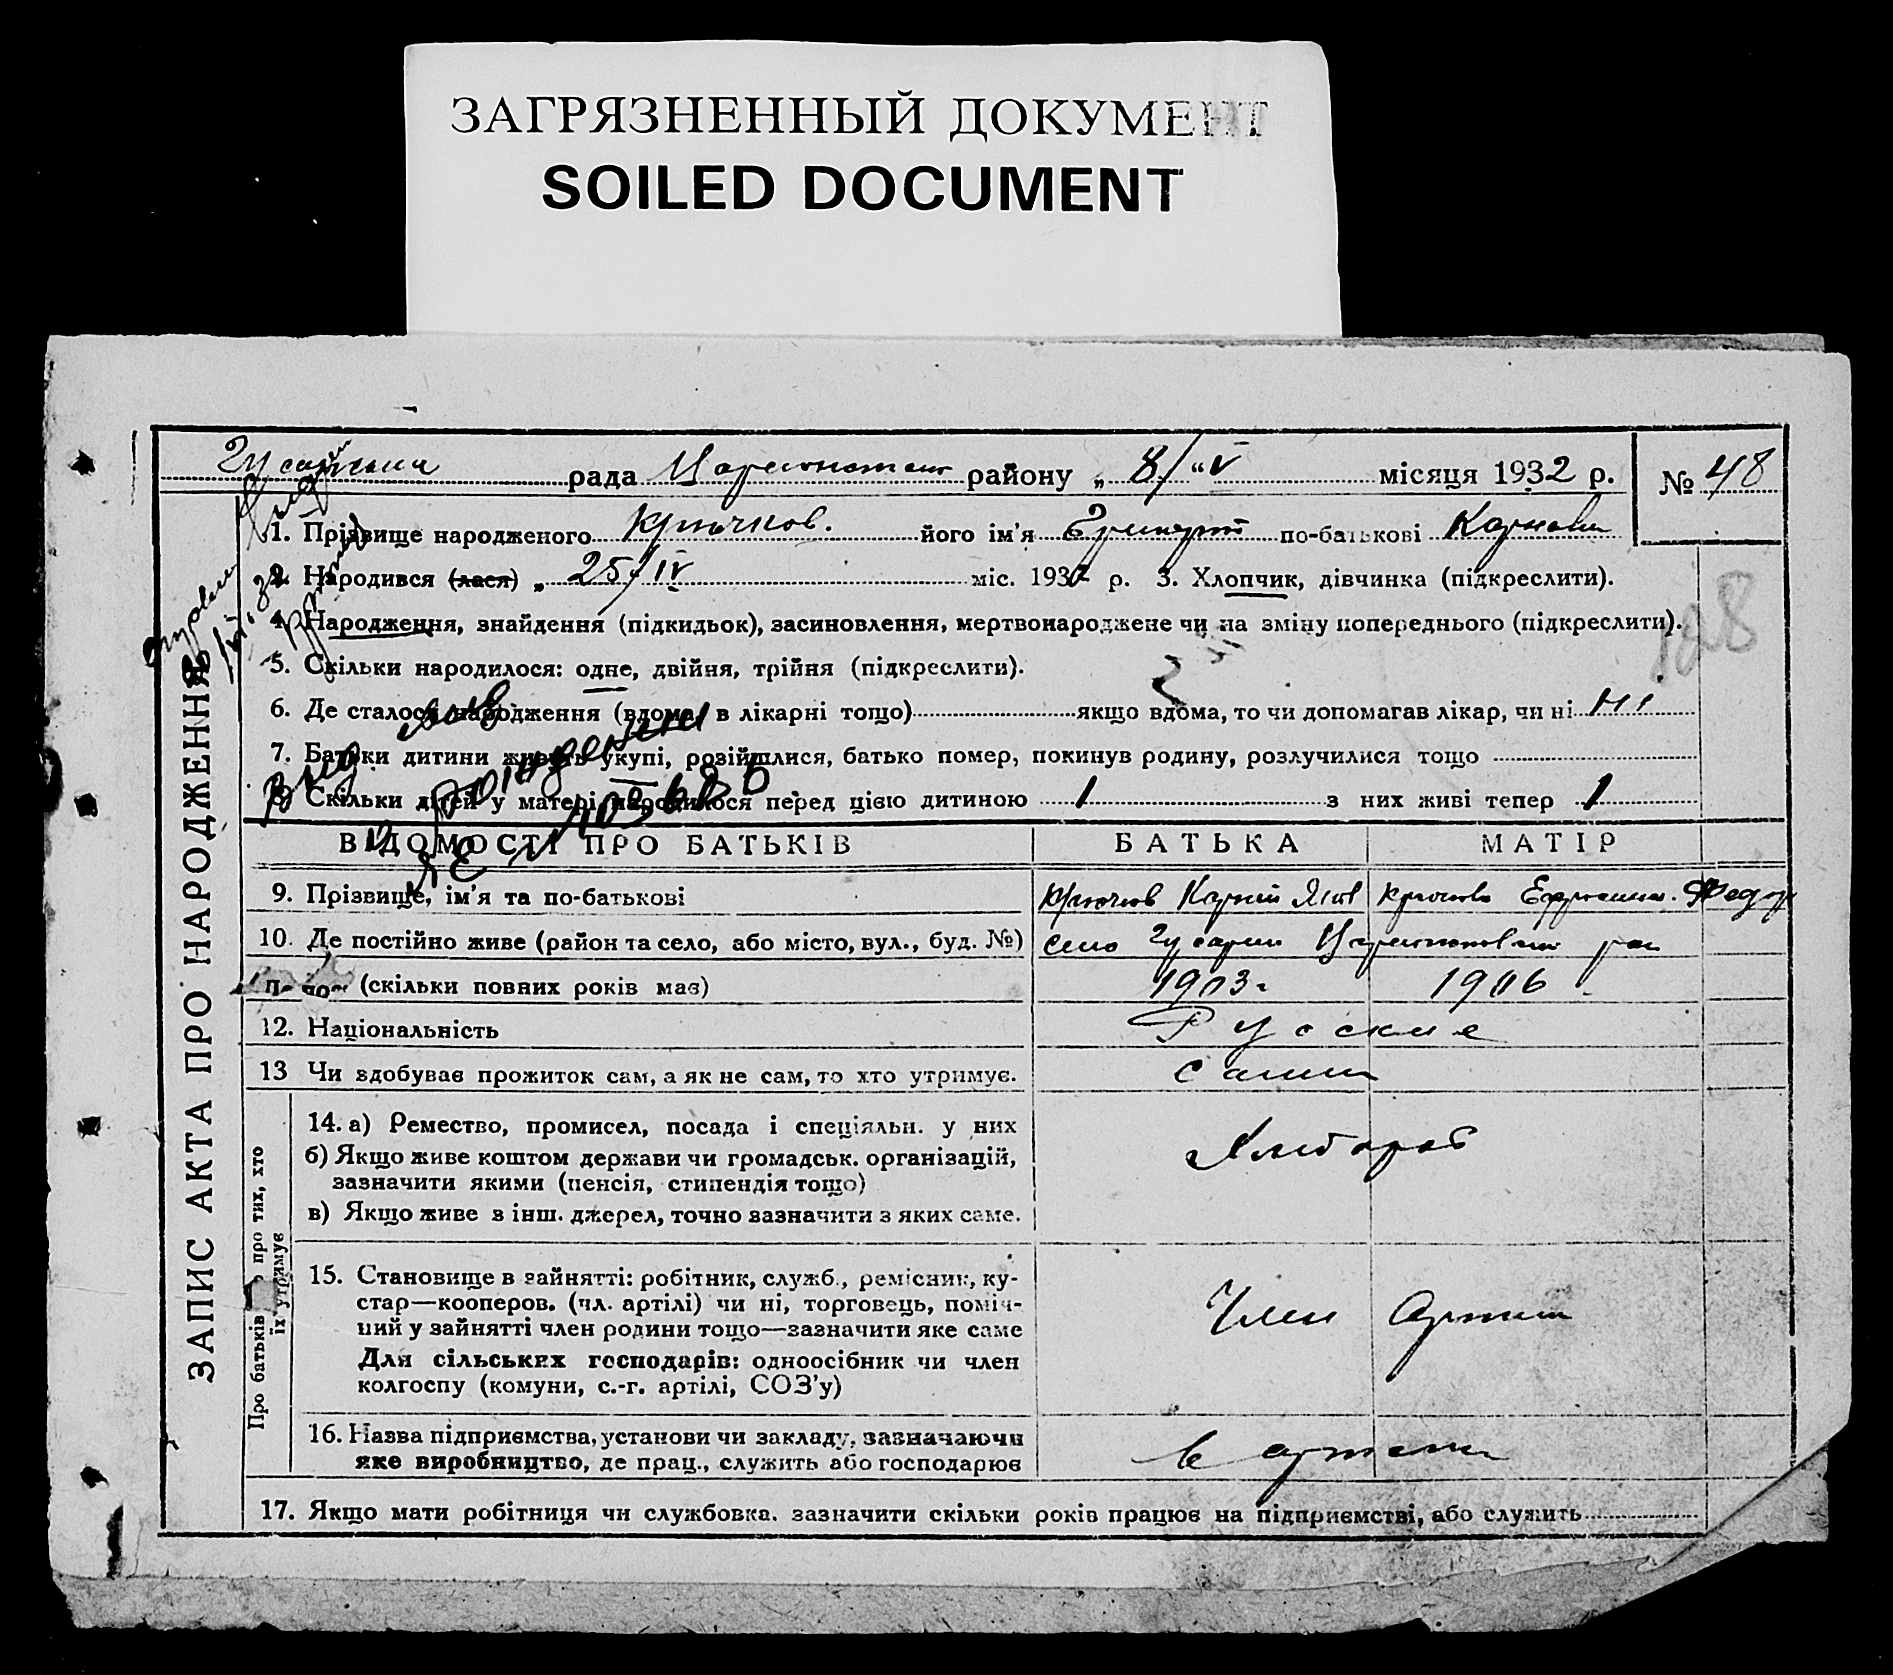 ЗАГРЯЗНЕННЫЙ ДОКУМЕНТ
SOILED DOCUMENT
рада району „ 8/ “ V місяця 1932 р. № 48
1. Прізвище народженого Крючков. його ім’я Григорій по-батькові
2. Народився (лася) „ 25/IV міс. 1932 р. 3. Хлопчик, дівчинка (підкреслити).
4. Народження, знайдення (підкидьок), засиновлення, мертвонароджене чи на зміну попереднього (підкреслити).
128
5. Скільки народилося: одне, двійня, трійня (підкреслити).
6. Де сталося народження (вдома, в лікарні тощо) якщо вдома, то чи допомагав лікар, чи ні Ні
7. Батьки дитини живуть укупі, розійшлися, батько помер, покинув родину, розлучилися тощо
8. Скільки дітей у матері народилося перед цією дитиною 1 з них живі тепер 1
ВІДОМОСТІ ПРО БАТЬКІВ БАТЬКА МАТІР
9. Прізвище, ім’я та по-батькові Крючков Карпій Яков Крючкова Ефросинья Федор
10. Де постійно живе (район та село, або місто, вул., буд. №) село
(скільки повних років має) 1903 г 1906
12. Національність Русские
13 Чи здобуває прожиток сам, а як не сам, то хто утримує. Сами
14. а) Ремество, промисел, посада і спеціяльн. у них Хлебороб
б) Якщо живе коштом держави чи громадськ. організацій,
зазначити якими (пенсія, стипендія тощо)
в) Якщо живе з інш. джерел, точно зазначити з яких саме.
15. Становище в зайнятті: робітник, служб., ремісник, ку-
стар—кооперов. (чл. артілі) чи ні, торговець, поміч-
ний у зайнятті член родини тощо—зазначити яке саме Член Артели
Для сільських господарів: одноосібник чи член
колгоспу (комуни, с.-г. артілі, СОЗ’у)
16. Назва підприємства, установи чи закладу, зазначаючи
яке виробництво, де прац., служить або господарює в артели
17. Якщо мати робітниця чи службовка. зазначити скільки років працює на підприємстві, або служить
ЗАПИС АКТА ПРО НАРОДЖЕННЯ
Про батьків про тих, хто
їх утримує